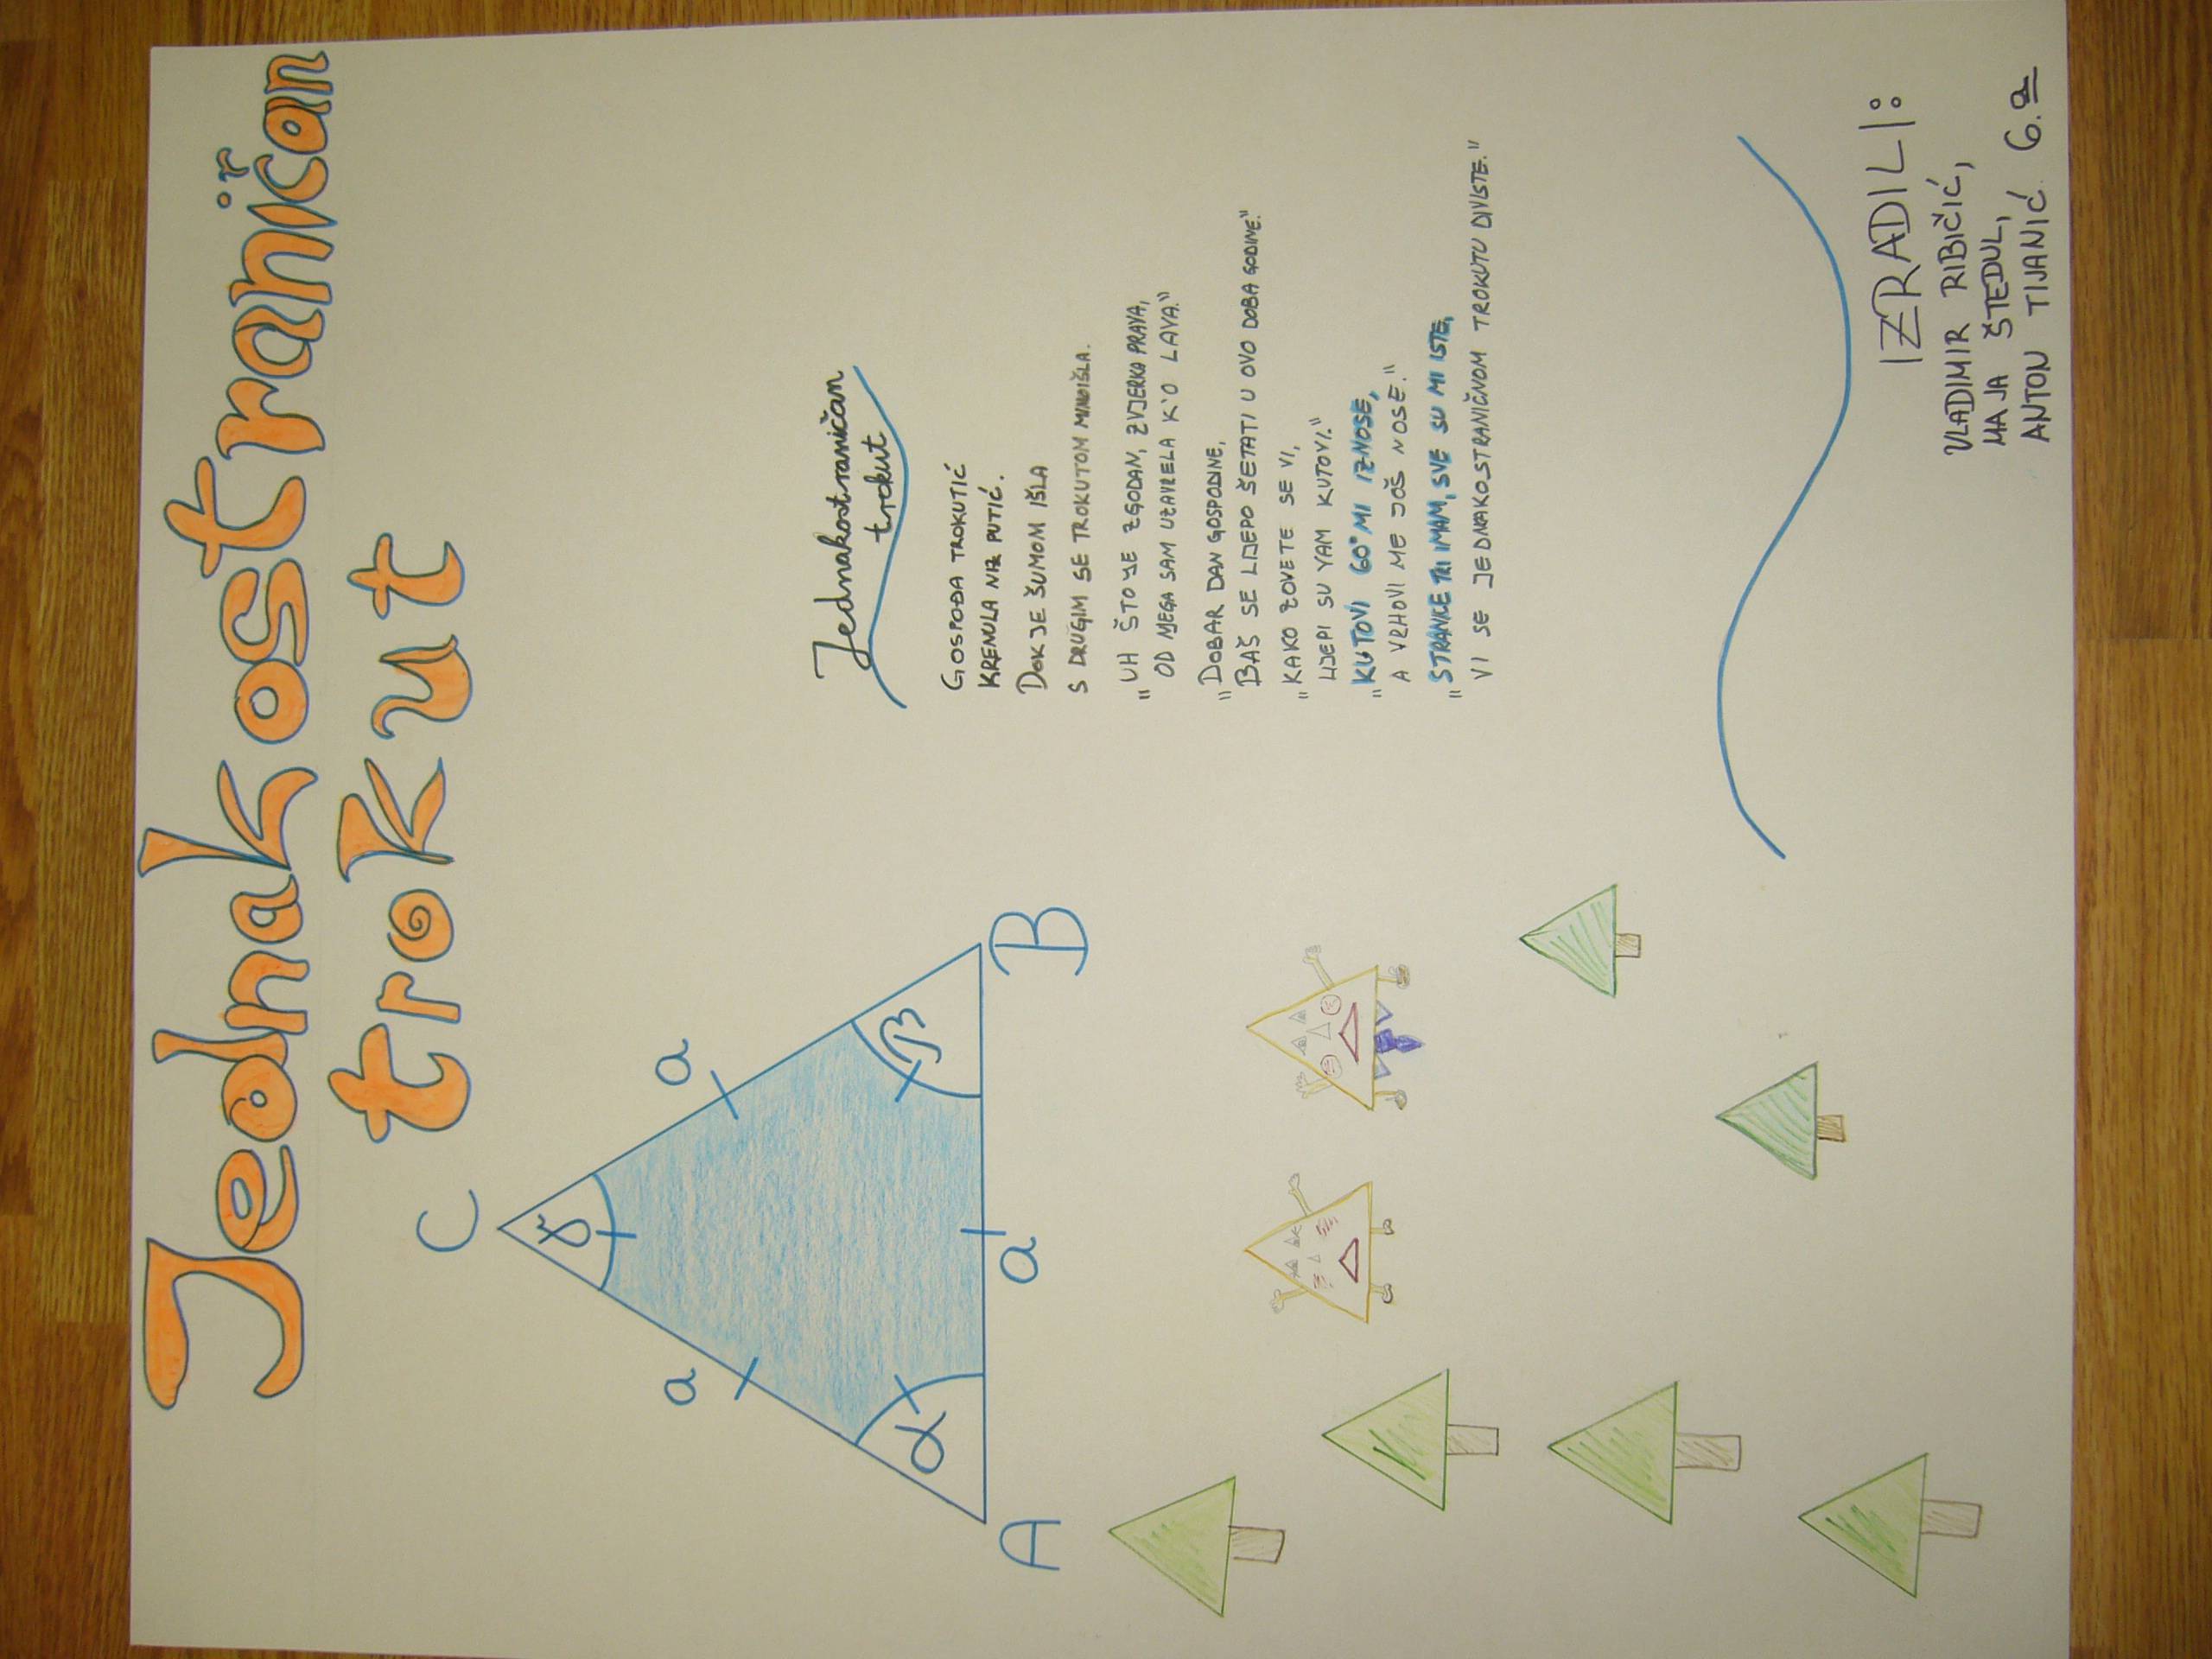 Jednakostraničan
trokut
C
γ
a
a
α
β
A
a
B
Jednakostraničan
trokut
GOSPOĐA TROKUTIĆ
KRENULA NIZ PUTIĆ.
DOK JE ŠUMOM IŠLA
S DRUGIM SE TROKUTOM MIMOIŠLA.
"UH ŠTO JE ZGODAN, ZVJERKA PRAVA,
OD NJEGA SAM UZAVRELA K'O LAVA."
"DOBAR DAN GOSPODINE,
BAŠ SE LIJEPO ŠETATI U OVO DOBA GODINE."
"KAKO ZOVETE SE VI,
LIJEPI SU VAM KUTOVI."
"KUTOVI 60° MI IZNOSE,
A VRHOVI ME JOŠ NOSE."
"STRANICE TRI IMAM, SVE SU MI ISTE,
VI SE JEDNAKOSTRANIČNOM TROKUTU DIVISTE."
IZRADILI:
VLADIMIR RIBIČIĆ,
MAJA ŠTEDUL,
ANTON TIJANIĆ 6.a